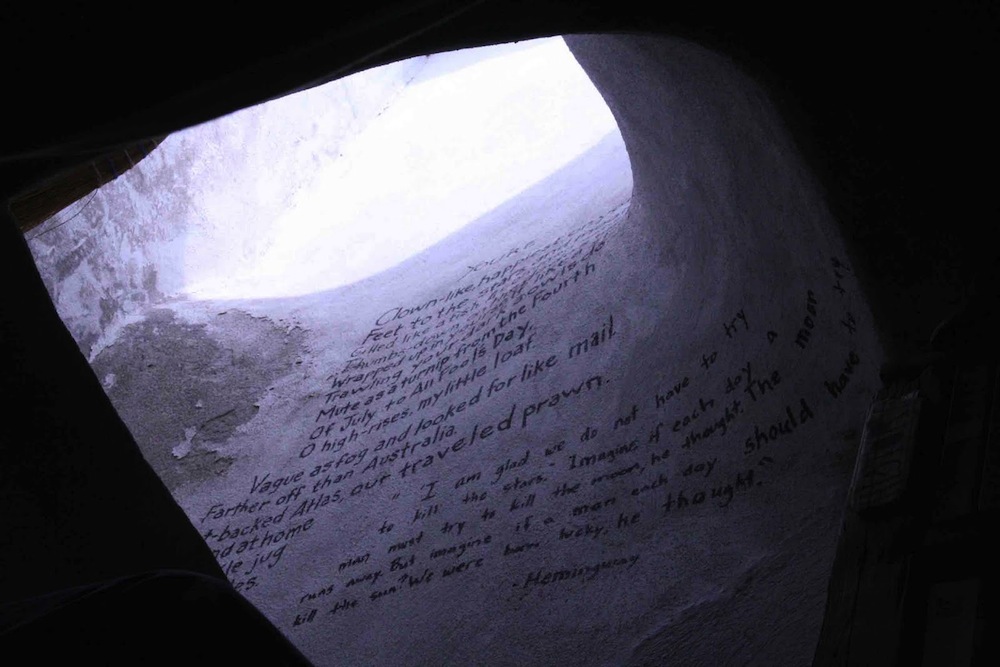 You're
Clown-like, hap
Feet to the stars
Gilled like a fish
Thumbs-down on
Wrapped up in your like
Trawling your dark as owls do
Mute as a turnip from the Fourth
Of July to All Fools Day,
O high-riser, my little loaf
Vague as fog and looked for like mail
Farther off than Australia.
t-backed Atlas, our traveled prawn.
nd at home
le jug
es.
"I am glad we do not have to try
to kill the stars." "Imagine if each day a
man must try to kill the moon, he thought. The moon
runs away. But imagine if a man each day should have to try
kill the sun? We were born lucky, he thought."
-Hemingway